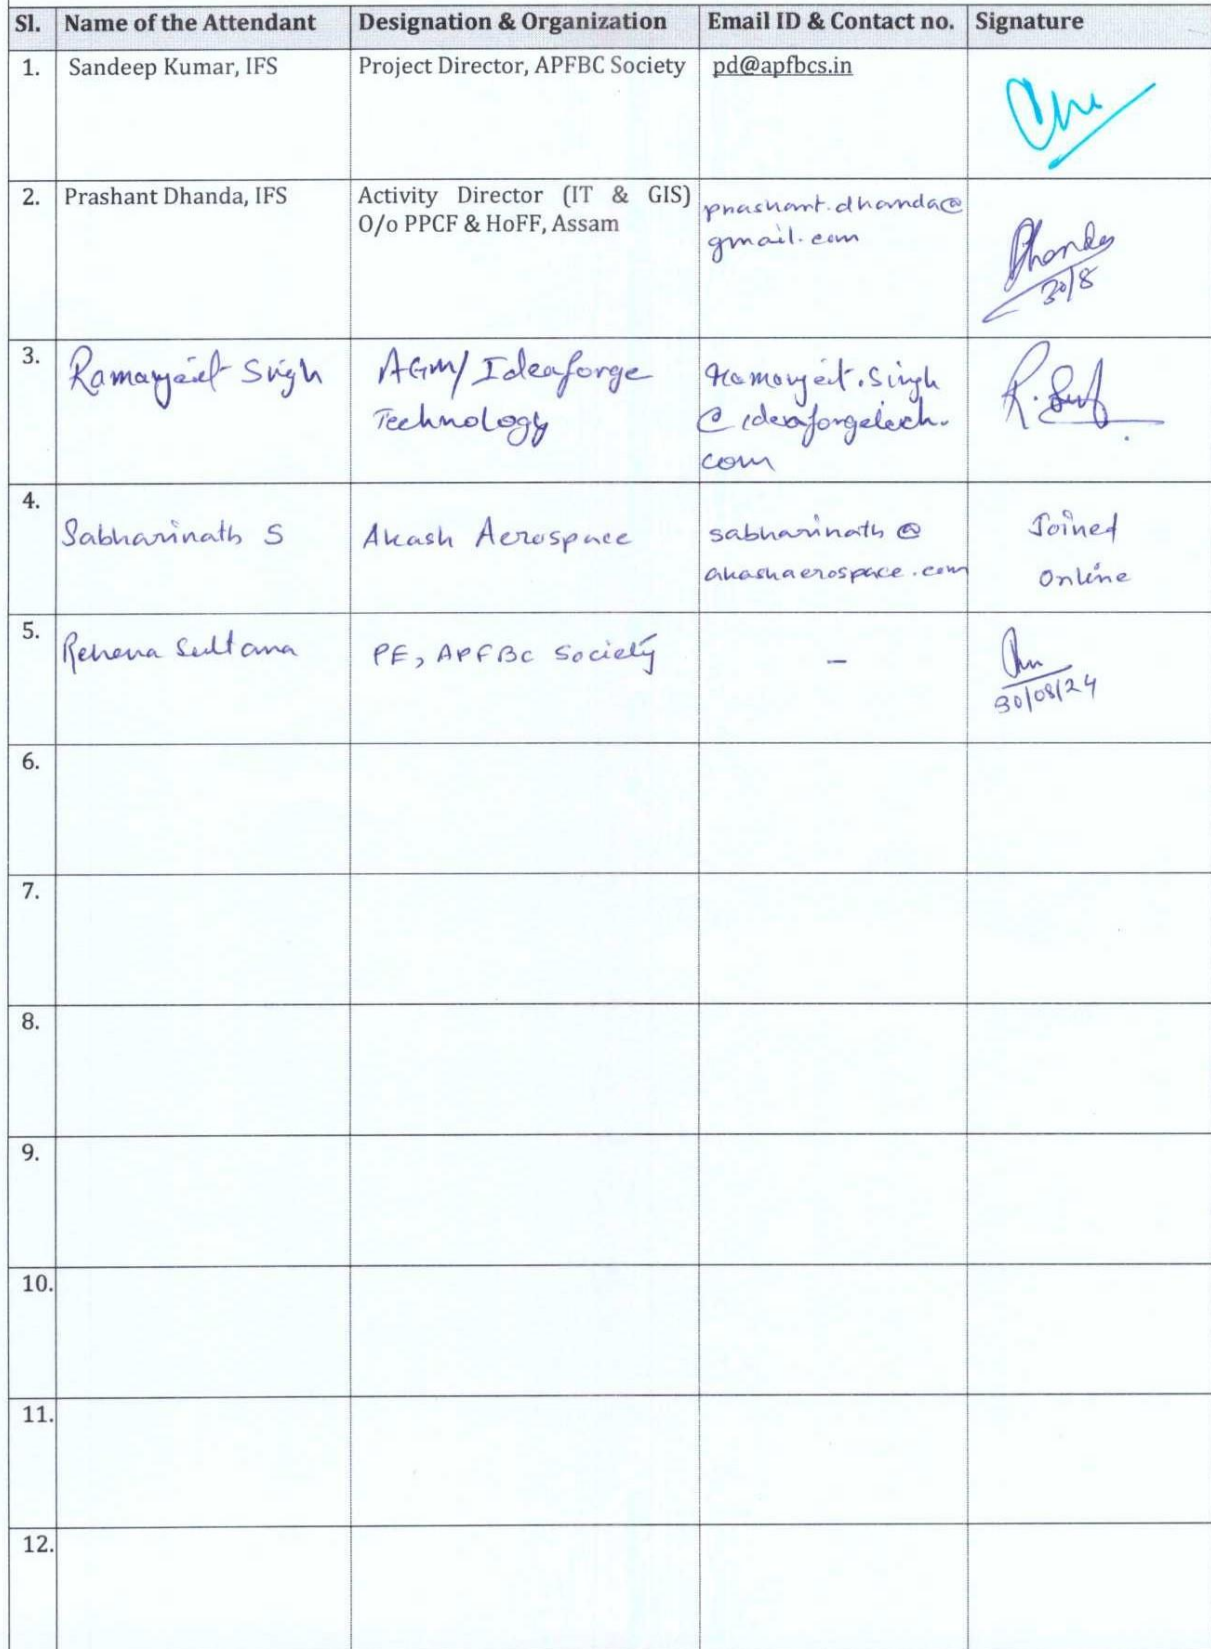 Sl. Name of the Attendant Designation & Organization Email ID & Contact no. Signature
1. Sandeep Kumar, IFS Project Director, APFBC Society pd@apfbcs.in
2. Prashant Dhanda, IFS Activity Director (IT & GIS) prashant.dhanda@
O/o PPCF & HoFF, Assam gmail.com
Dhanda
30/8
3. Ramanjeet Singh AGM/ Ideaforge ramanjeet.singh
Technology @ideaforgetech.
com
4. Sabharinath S Akash Aerospace sabharinath@ Joined
akashaerospace.com Online
5. Rehena Sultana PE, APFBC Society –
30/08/24
6.
7.
8.
9.
10.
11.
12.